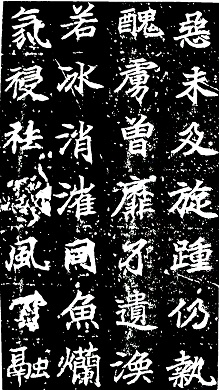 惡未及旋踵仍執
醜虜曾靡孑遺渙
若冰消漼同魚爛
氛祲祛風融